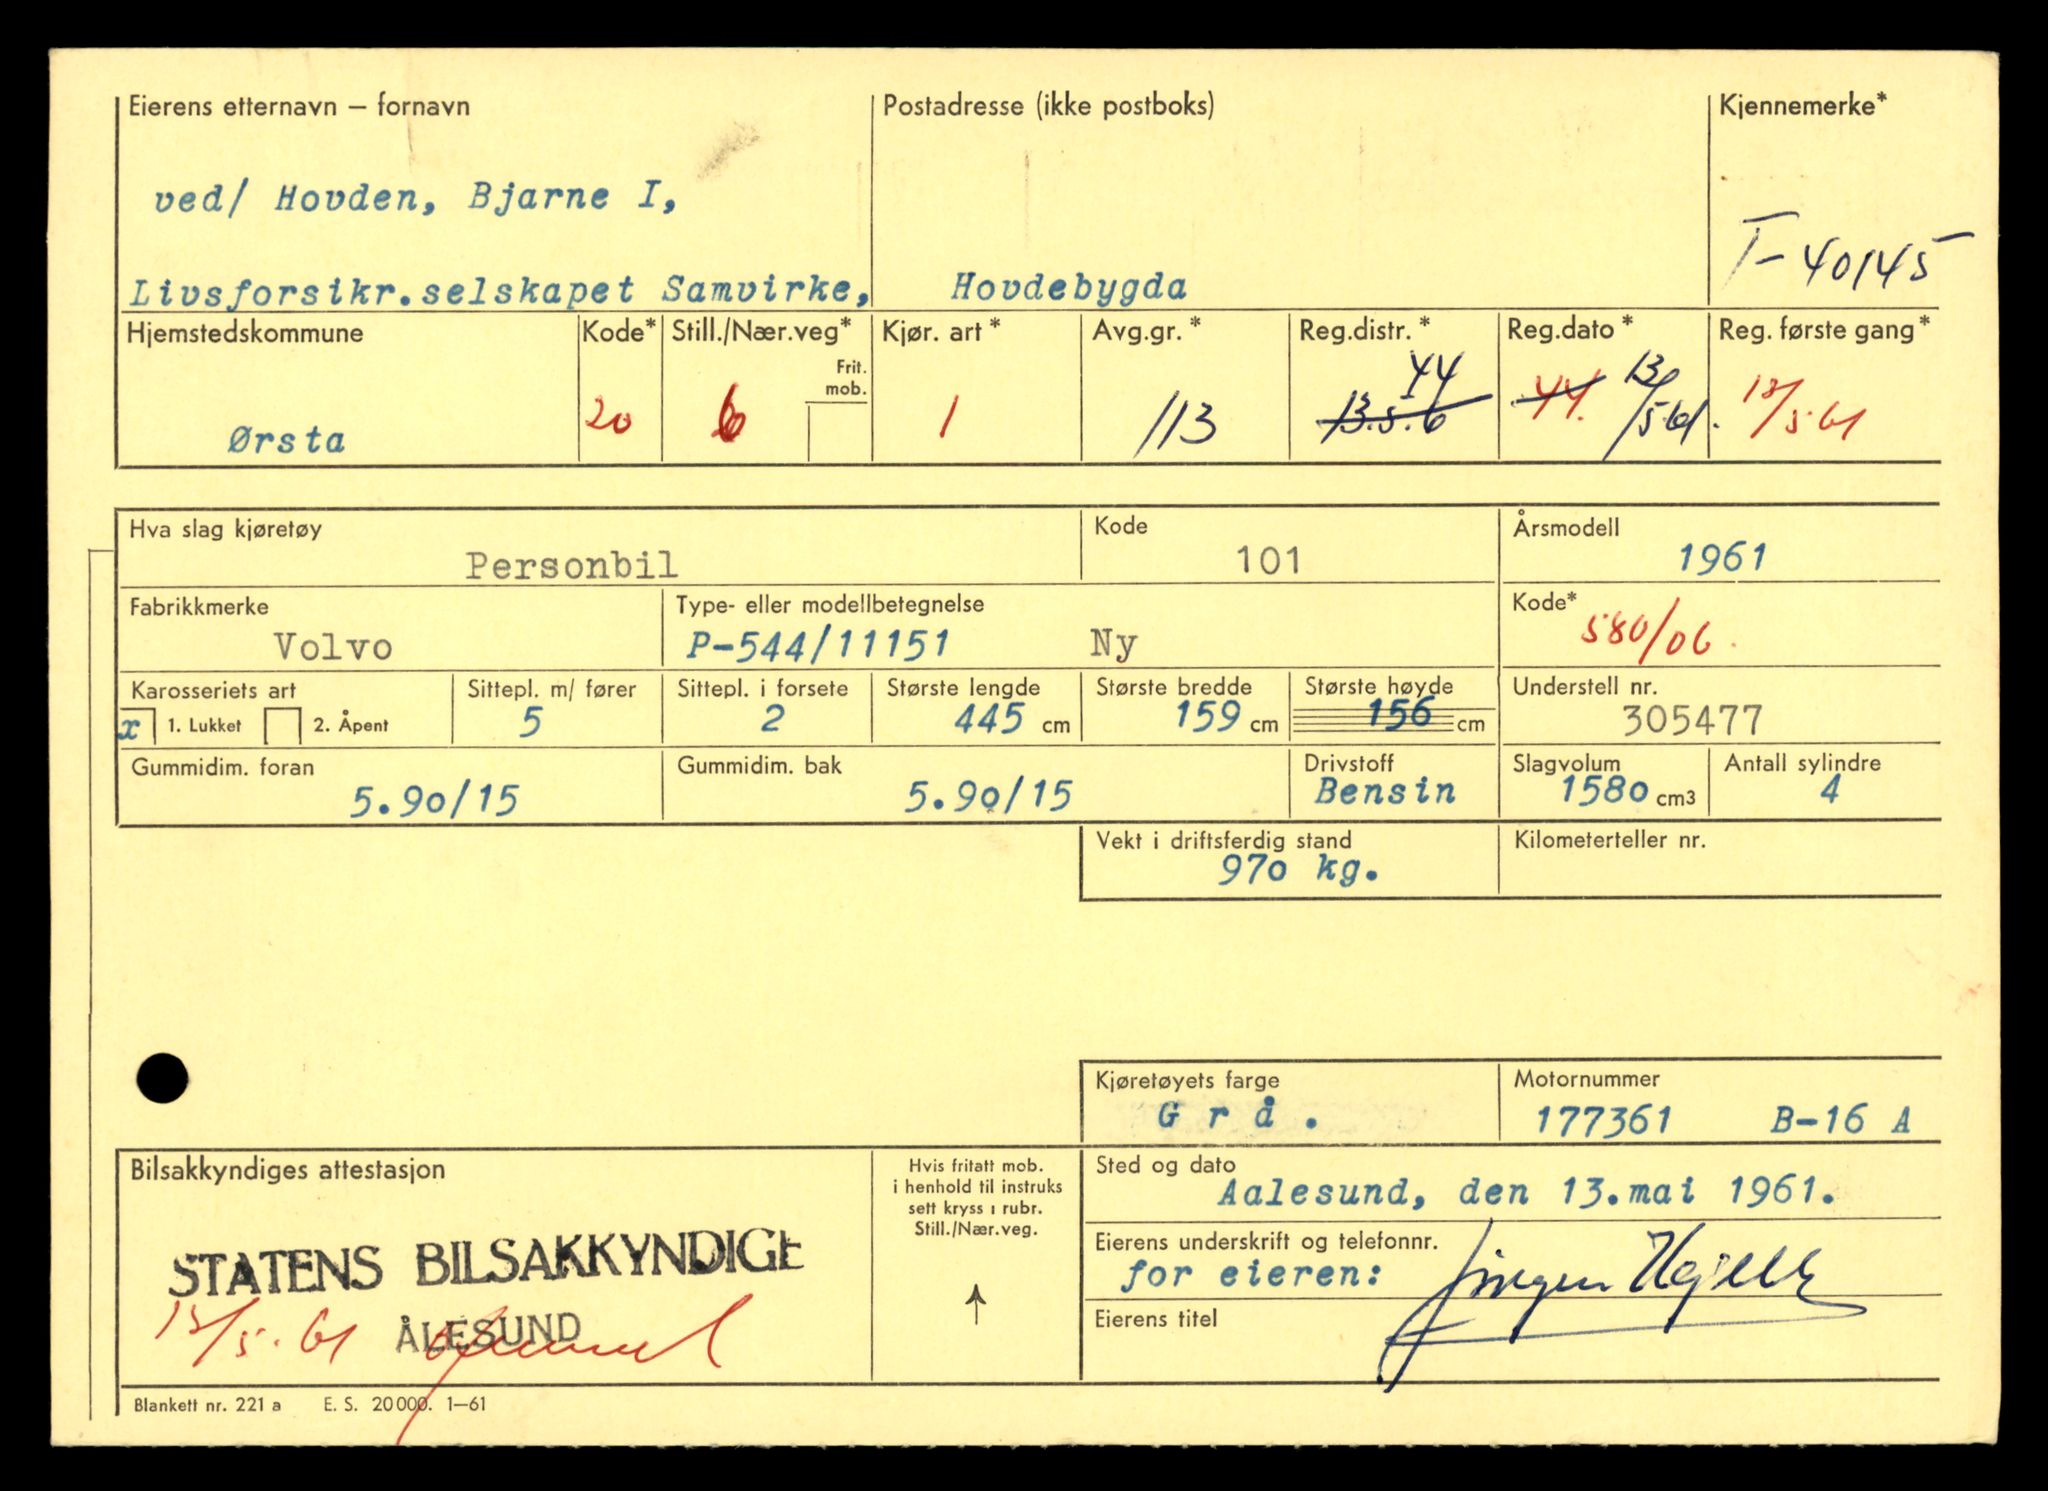 Eierens etternavn — fornavn
Postadresse (ikke postboks)
Kjennemerke*
ved/ Hovden, Bjarne I,
T-40145
Livsforsikr.selskapet Samvirke,
Hovdebygda
Hjemstedskommune
Kode*
Still./Nær.veg*
Kjør. art*
Avg.gr.*
Reg.distr.*
Reg.dato*
Reg. første gang*
Frit.
mob.
Ørsta
20
6
1
113
44
13.5.6
44.
13/5.61.
13/5.61
Hva slag kjøretøy
Personbil
Kode
101
Årsmodell
1961
Fabrikkmerke
Volvo
Type- eller modellbetegnelse
P-544/11151 Ny
Kode*
580/06.
Karosseriets art
x 1. Lukket 2. Åpent
Sittepl. m/ fører
5
Sittepl. i forsete
2
Største lengde
445 cm
Største bredde
159 cm
Største høyde
156 cm
Understell nr.
305477
Gummidim. foran
5.90/15
Gummidim. bak
5.90/15
Drivstoff
Bensin
Slagvolum
1580 cm3
Antall sylindre
4
Vekt i driftsferdig stand
970 kg.
Kilometerteller nr.
Kjøretøyets farge
Grå.
Motornummer
177361 B-16 A
Bilsakkyndiges attestasjon
STATENS BILSAKKYNDIGE
13/5.61 ÅLESUND
Hvis fritatt mob.
i henhold til instruks
sett kryss i rubr.
Still./Nær.veg.
Sted og dato
Aalesund, den 13.mai 1961.
Eierens underskrift og telefonnr.
for eieren:
Eierens titel
Blankett nr. 221 a E. S. 20000. 1—61